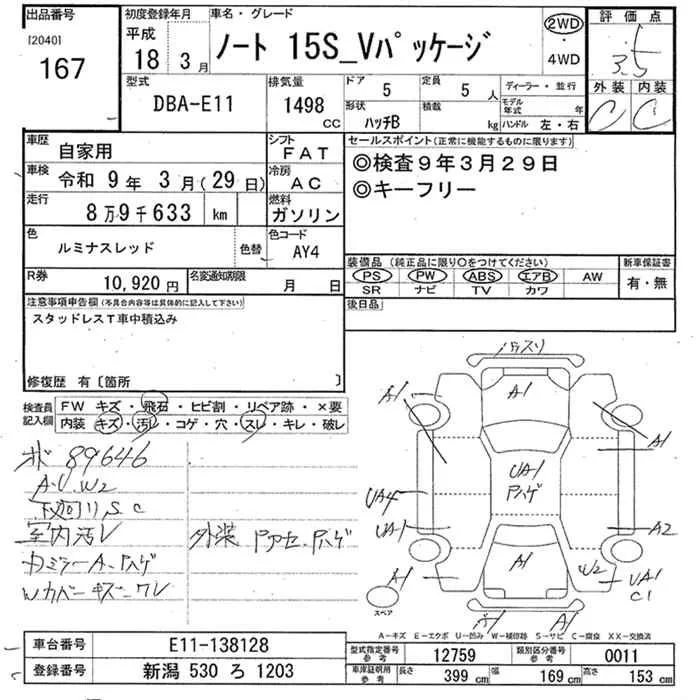 出品番号
[2040]
167
初度登録年月
平成
18 3月
車名・グレード
ノート 15S_Vパッケージ
2WD
・
4WD
評価点
3.5
外装 内装
C C
型式
DBA-E11
排気量
1498
CC
ドア
5
定員
5 人
形状
ハッチB
積載
kg
ディーラー・並行
モデル年式 年
ハンドル 左・右
車歴
自家用
シフト
FAT
車検
令和 9年 3月(29日)
冷房
AC
走行
8万9千633 km
燃料
ガソリン
色
ルミナスレッド
色替
色コード
AY4
R券
10,920円
名変通知期限
月 日
セールスポイント(正常に機能するものに限ります)
◎検査9年3月29日
◎キーフリー
装備品(純正品に限り○をつけてください)
PS PW ABS エアB AW
SR ナビ TV カワ
新車保証書
有・無
後日品
注意事項申告欄(不具合内容等は具体的に記入して下さい)
スタッドレスT車中積込み
修復歴 有〔箇所 〕
検査員記入欄
FW キズ・飛石・ヒビ割・リペア跡・×要
内装 キズ・汚・コゲ・穴・スレ・キレ・破レ
89646
A.U.W2
下廻りS.C
室内汚レ
外装 ドアクセ.Pハゲ
カミラーA.Pハゲ
Wカバーキズ・ワレ
A1
A1
A1
A1
UA1
Pハゲ
UA4
UA1
A2
A1
A1
W2
UA1
C1
A1
A1
スペア
A-キズ E-エクボ U-凹み W-補修跡 S-サビ C-腐食 XX-交換済
車台番号
E11-138128
登録番号
新潟 530 ろ 1203
型式指定番号
参考
12759
類別区分番号
参考
0011
車庫証明用
参考
長さ
399 cm
幅
169 cm
高さ
153 cm